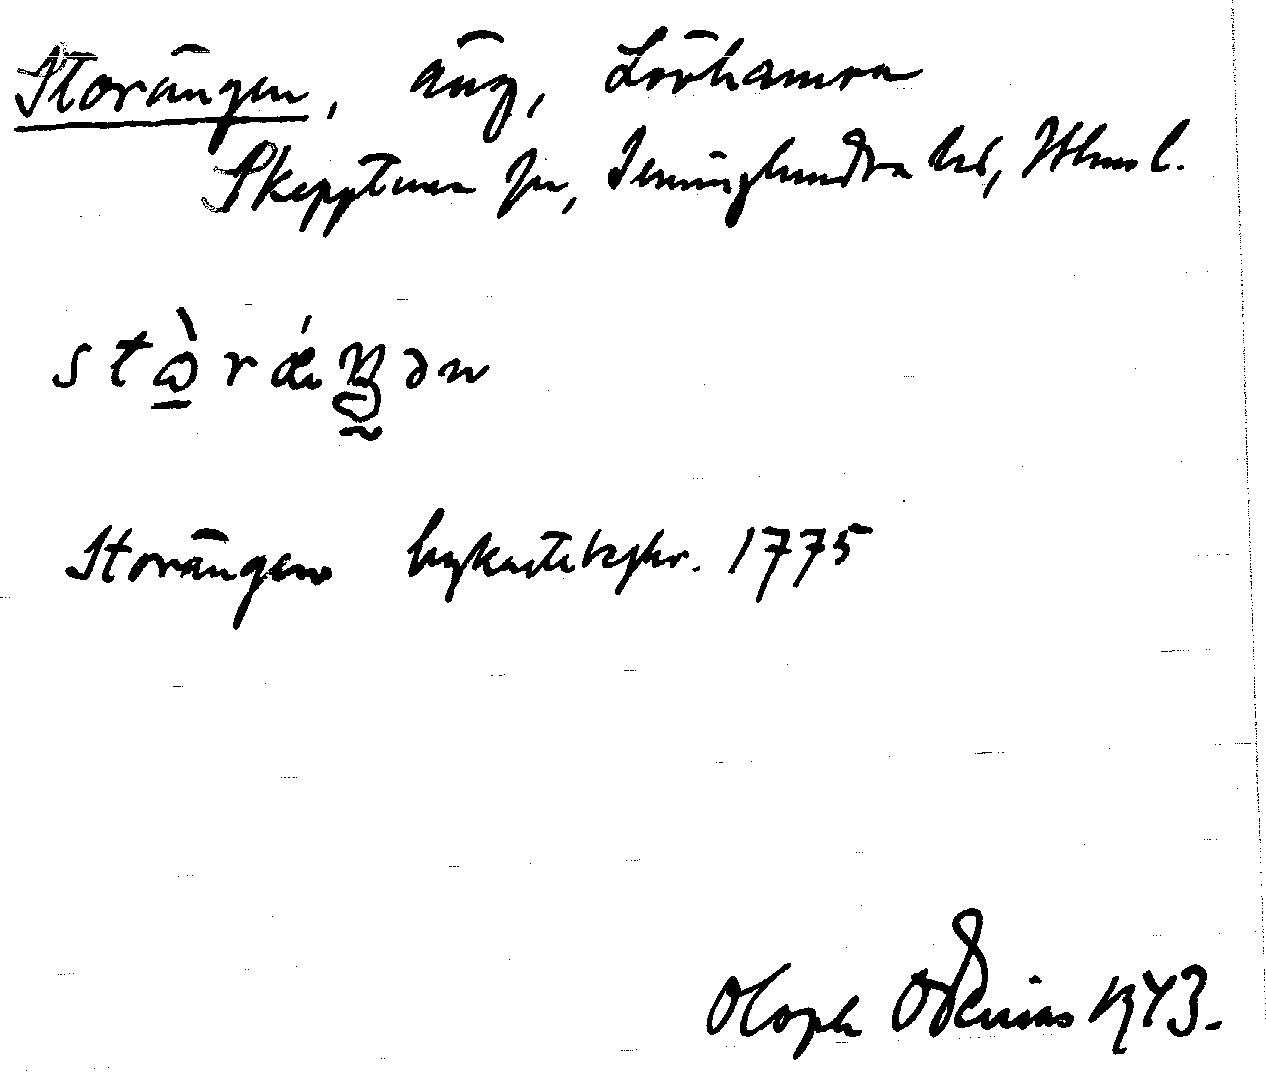 Storängen, äng, Lövhamra
Skepptuna sn, Seminghundra hd, Sthms l.
stὼrǽŋən
Storängen bykartebeskr. 1775
Oloph Odenius 1943.